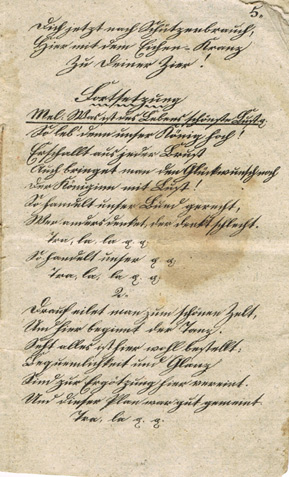 5.
Dich jetzt nach Schützenbrauch,
Hier mit dem Eichen-Kranz
Zu Deiner Zier!
Fortsetzung
Mel: Was ist des Lebens schönste Lust
So leb' denn unser König hoch!
Erschallt aus jeder Brust
Auch bringet man den Glückwunsch noch
Der Königinn mit Lust!
So handelt unser Bund gerecht,
Wer anders denket, der denkt schlecht.
Tra, la, la q. q.
So handelt unser q. q.
Tra, la, la q. q.
2.
Drauf eilet man zum schönen Zelt,
Um hier beginnt der Tanz.
Seht alles ist hier wohl bestellt;
Bequemlichkeit und Glanz
Sind zur Ergötzung hier vereint.
Und dieser Plan war gut gemeint
Tra, la q. q.